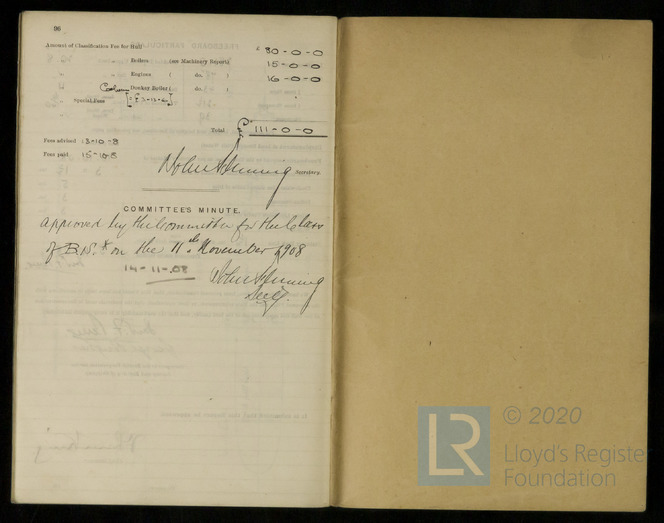 96
Amount of Classification Fee for Hull £ 80-0-0
" Boilers (see Machinery Report) 15-0-0
" Engines ( do. ) 16-0-0
" Donkey Boiler ( do. )
Special Fees
Total £ 111-0-0
Fees advised 13-10-8
Fees paid 15-10-8
Secretary.
COMMITTEE'S MINUTE.
Approved by the Committee for the Class
of B.S.* on the 11th November 1908
14-11-08
Secty.
LR
© 2020
Lloyd's Register
Foundation